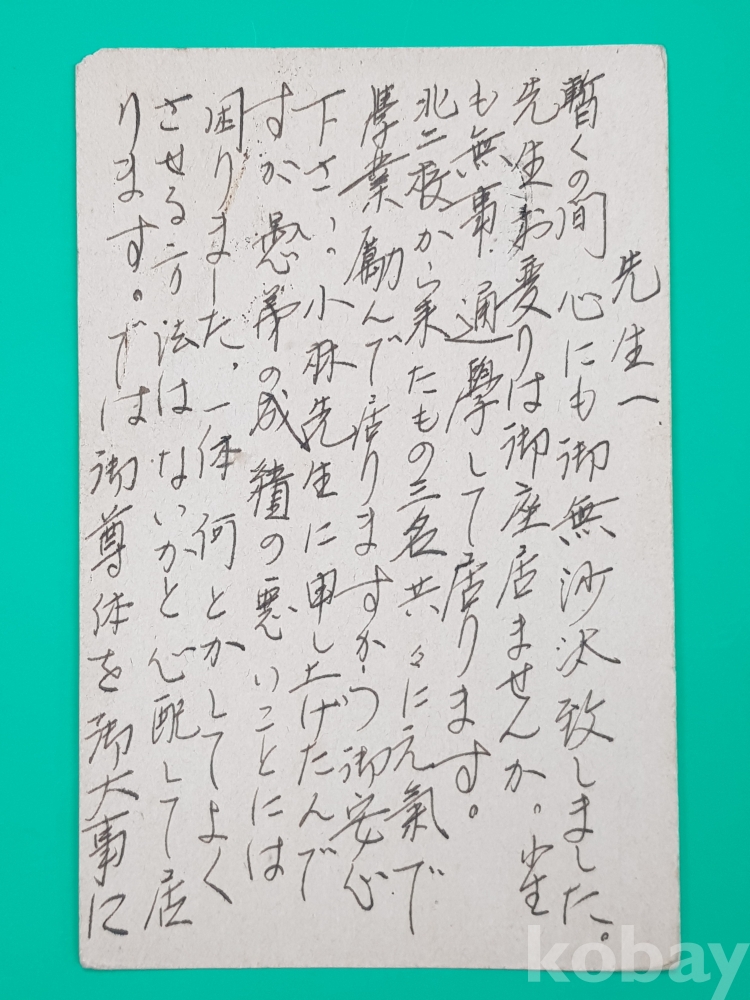 先生へ
暫くの間 心にも御無沙汰致しました。
先生お変りは御座居ませんか。小生
も無事 通學して居ります。
北二校から来たもの三名共々に元氣で
學業勵んで居りますから御安心
下さい。小林先生に申し上げたんで
すが愚弟の成績の悪いことには
困りました。一体何とかしてよく
させる方法はないかと心配して居
ります。では御尊体を御大事に
kobay